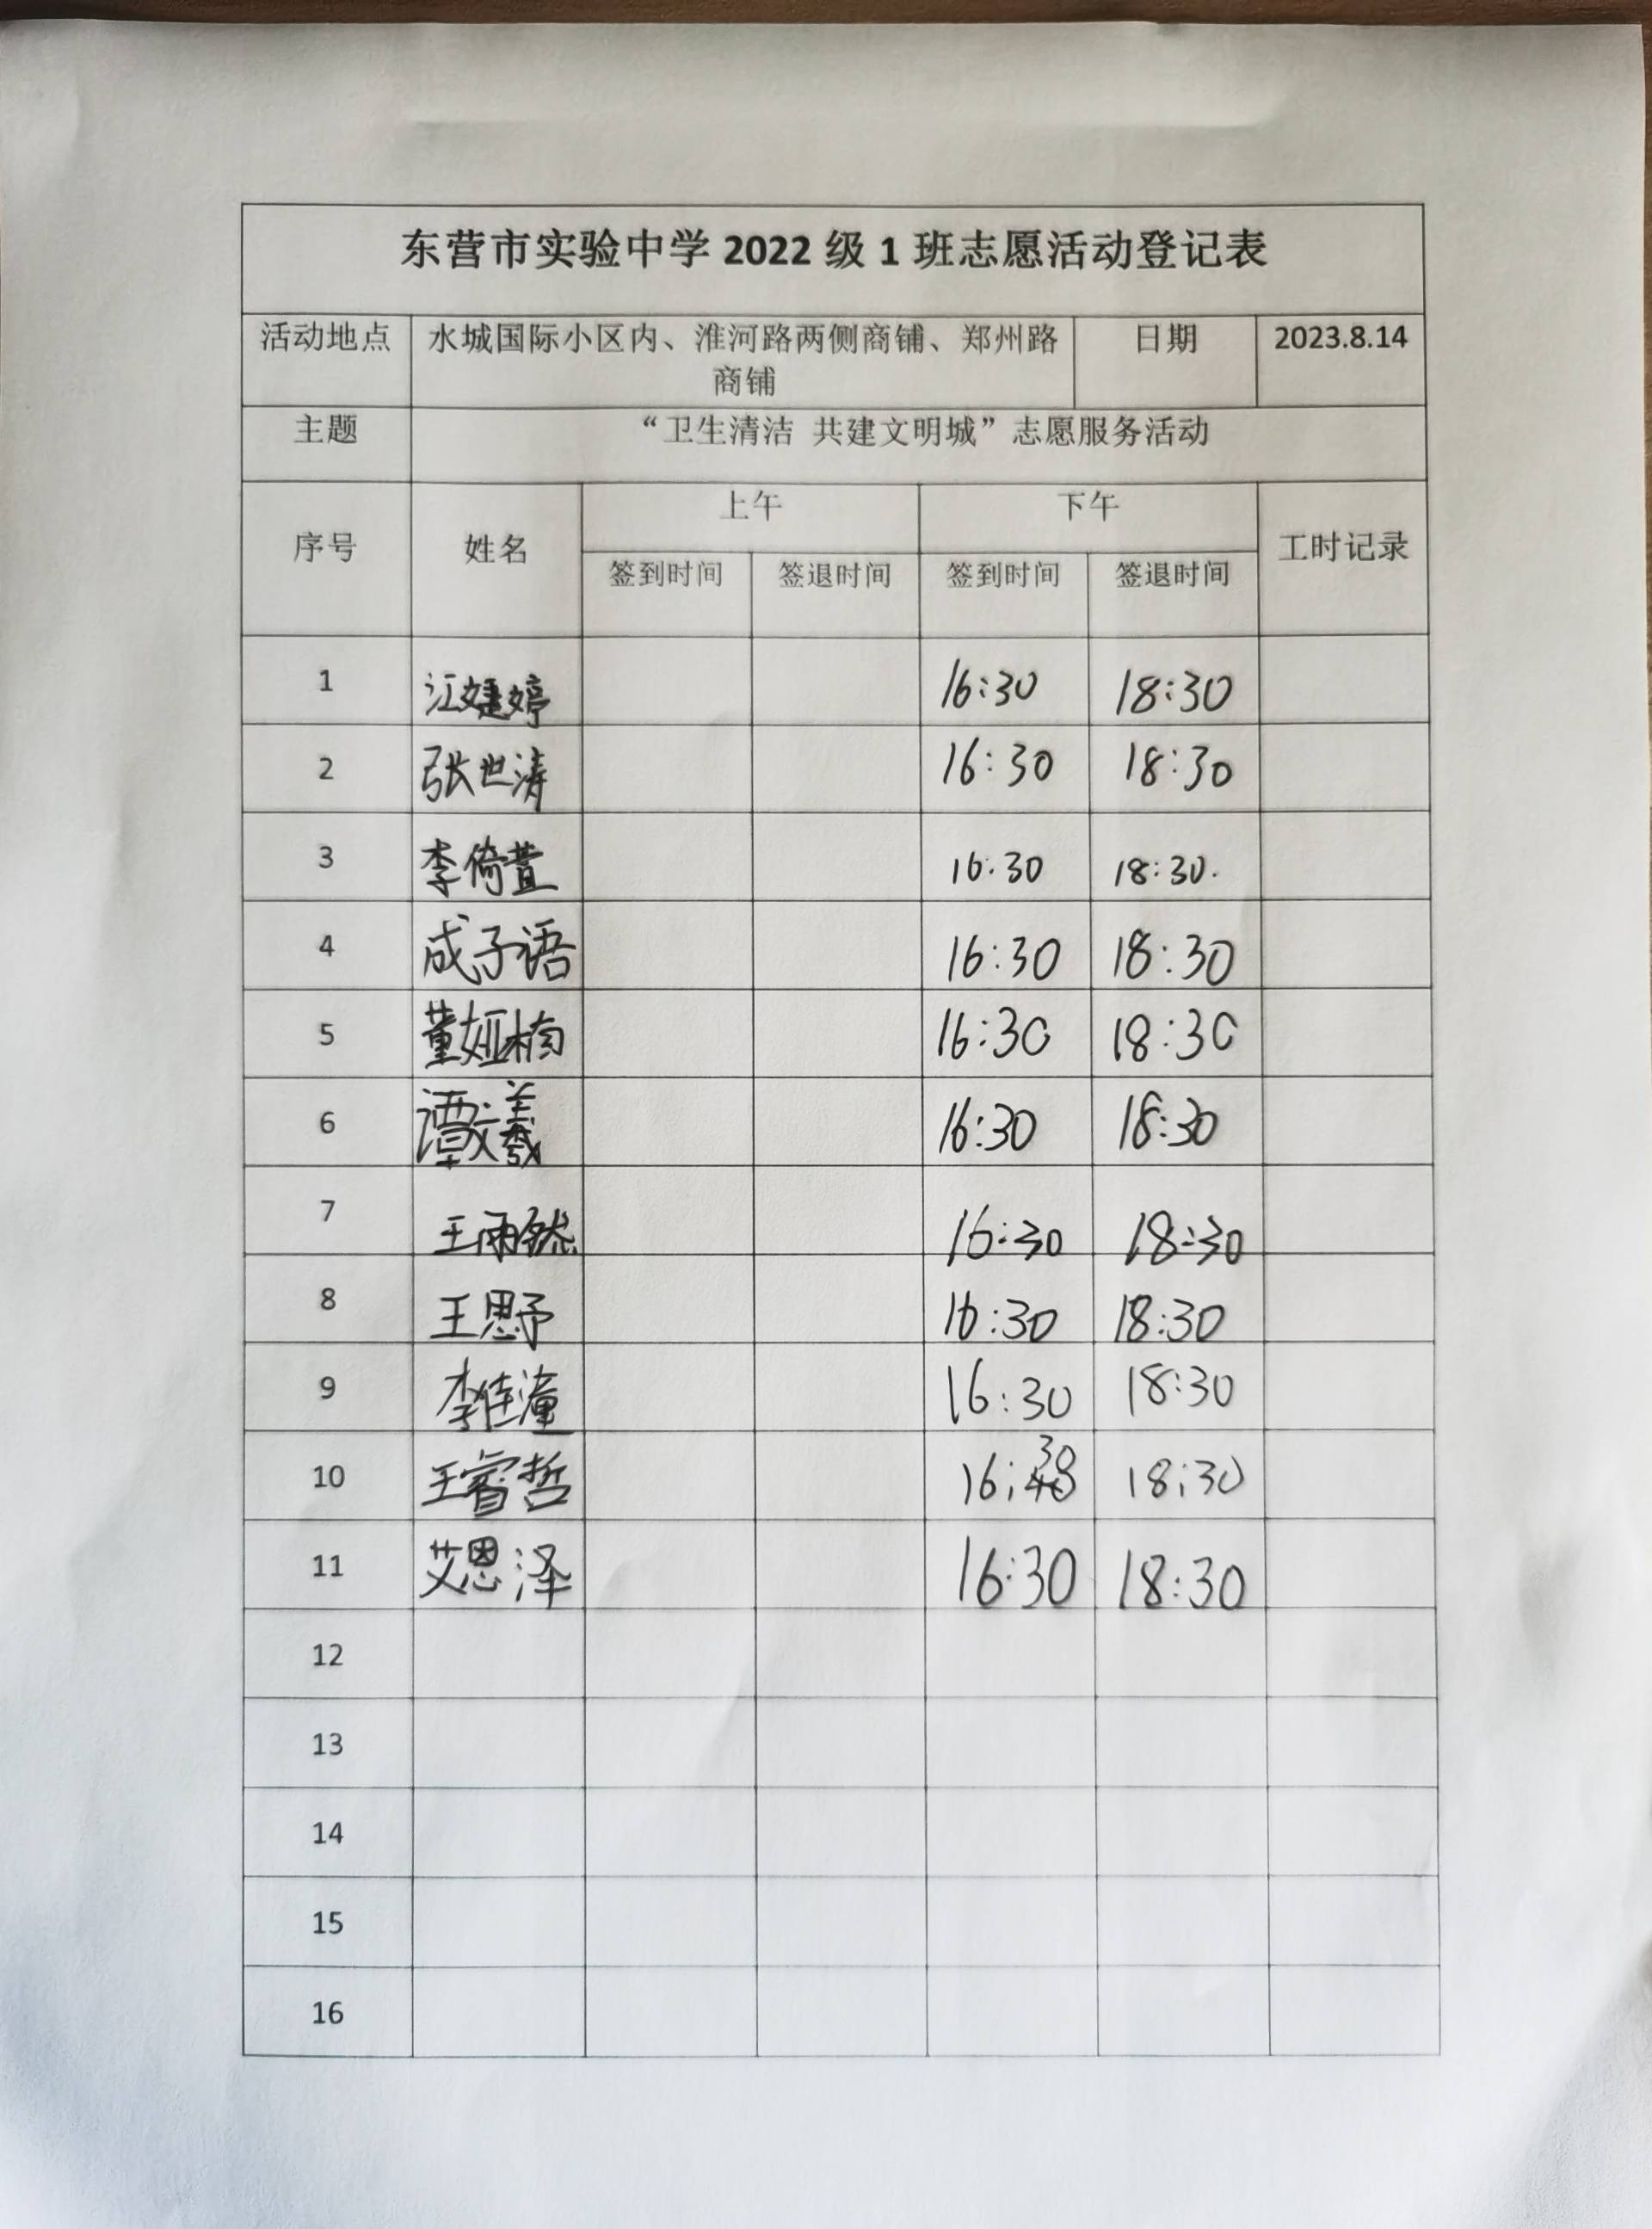 东营市实验中学 2022 级 1 班志愿活动登记表
活动地点 水城国际小区内、淮河路两侧商铺、郑州路商铺 日期 2023.8.14
主题 “卫生清洁 共建文明城”志愿服务活动
序号 姓名 上午 下午 工时记录
签到时间 签退时间 签到时间 签退时间
1 江婕婷 16:30 18:30
2 张世涛 16:30 18:30
3 李倚萱 16:30 18:30.
4 成子语 16:30 18:30
5 董娅楠 16:30 18:30
6 谭文羲 16:30 18:30
7 王雨然 16:30 18:30
8 王思予 16:30 18:30
9 李佳潼 16:30 18:30
10 王睿哲 16:30 18:30
11 艾恩泽 16:30 18:30
12
13
14
15
16